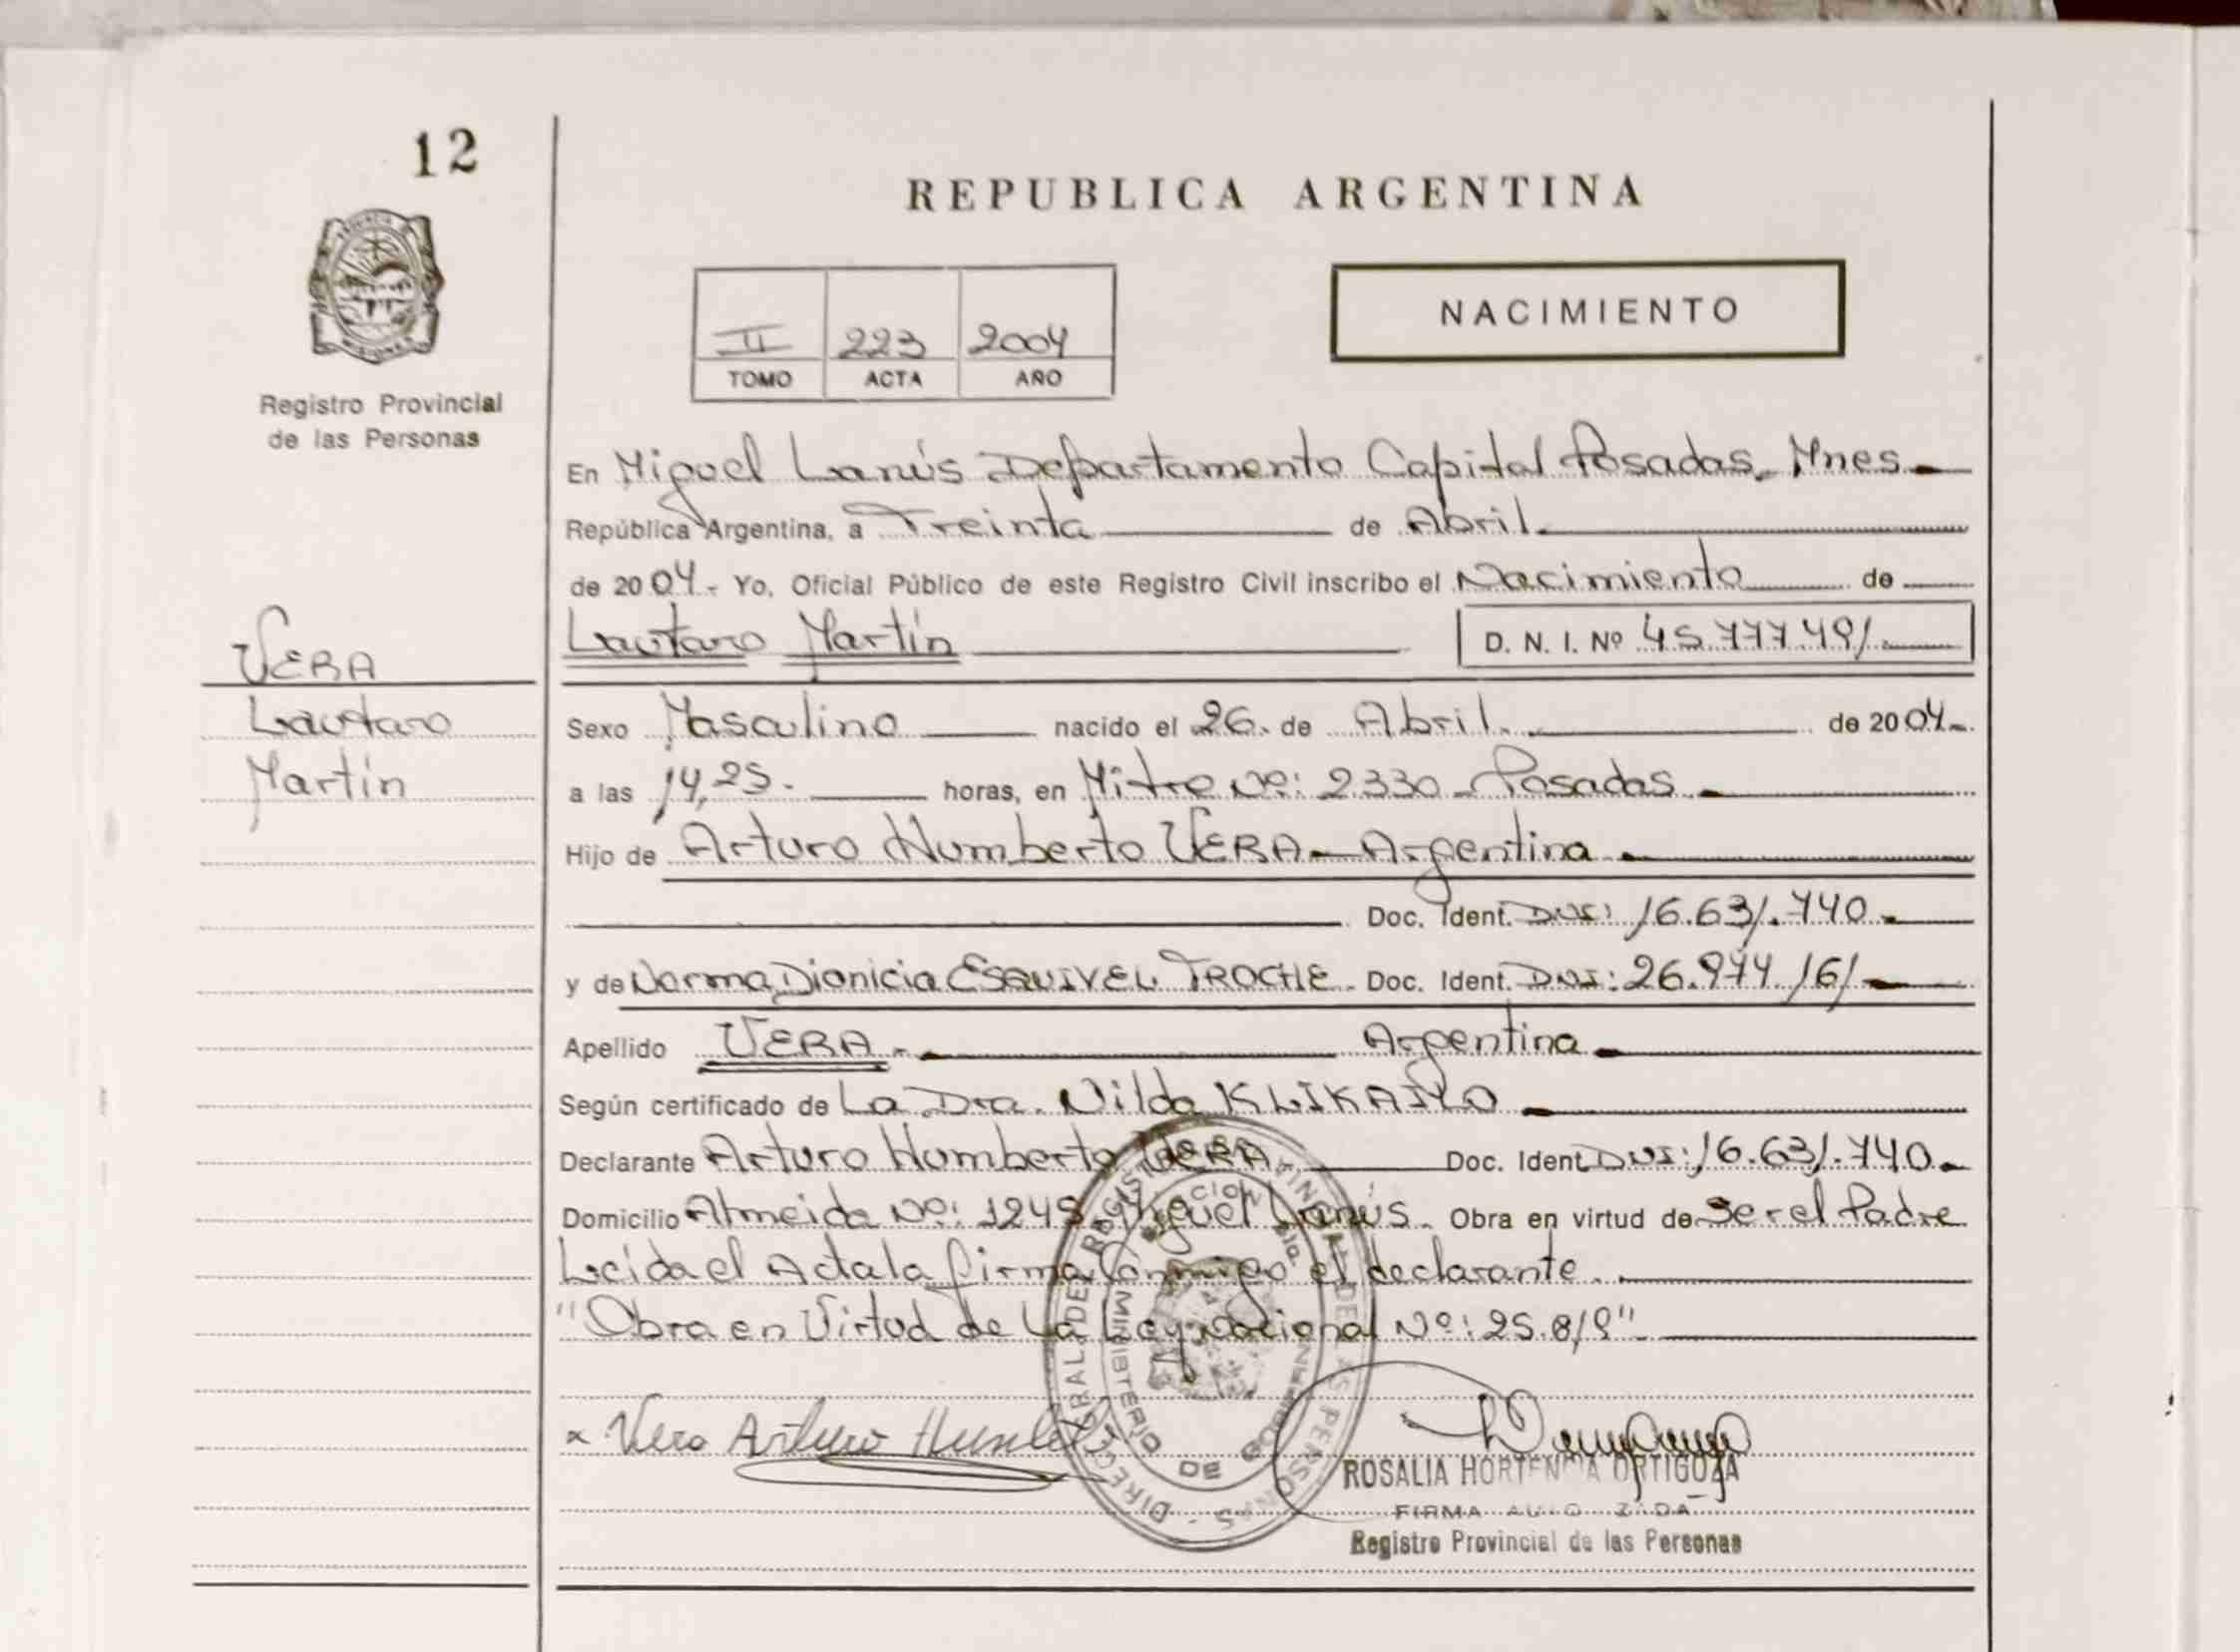 12
REPUBLICA ARGENTINA
NACIMIENTO
II 223 2004
TOMO ACTA AÑO
Registro Provincial
de las Personas
En Miguel Lanús Departamento Capital Posadas. Mnes
República Argentina, a Treinta de Abril
de 2004 - Yo, Oficial Público de este Registro Civil inscribo el Nacimiento de
Lautaro Martín D. N. I. Nº 45.777.491
VERA
Lautaro
Martín
Sexo Masculino nacido el 26 de Abril de 2004
a las 14,25 horas, en Mitre Nº: 2330 - Posadas
Hijo de Arturo Humberto VERA - Argentina
Doc. Ident. DNI: 16.631.740
y de Norma Dionicia ESQUIVEL TROCHE - Doc. Ident. DNI: 26.974.161
Apellido VERA - Argentina
Según certificado de La Dra. Nilda
Declarante Arturo Humberto VERA Doc. Ident. DNI: 16.631.740
Domicilio Almeida Nº: 1245 Miguel Lanús. Obra en virtud de Ser el Padre
Leída el Acta la firma Conmigo el declarante.
"Obra en Virtud de La Ley Nacional Nº: 25.819"
x Vera Arturo Humberto
DIRECCION GENERAL DEL REGISTRO PROVINCIAL DE LAS PERSONAS
MINISTERIO DE GOBIERNO
ROSALIA HORTENCIA ORTIGOZA
FIRMA AUTORIZADA
Registro Provincial de las Personas